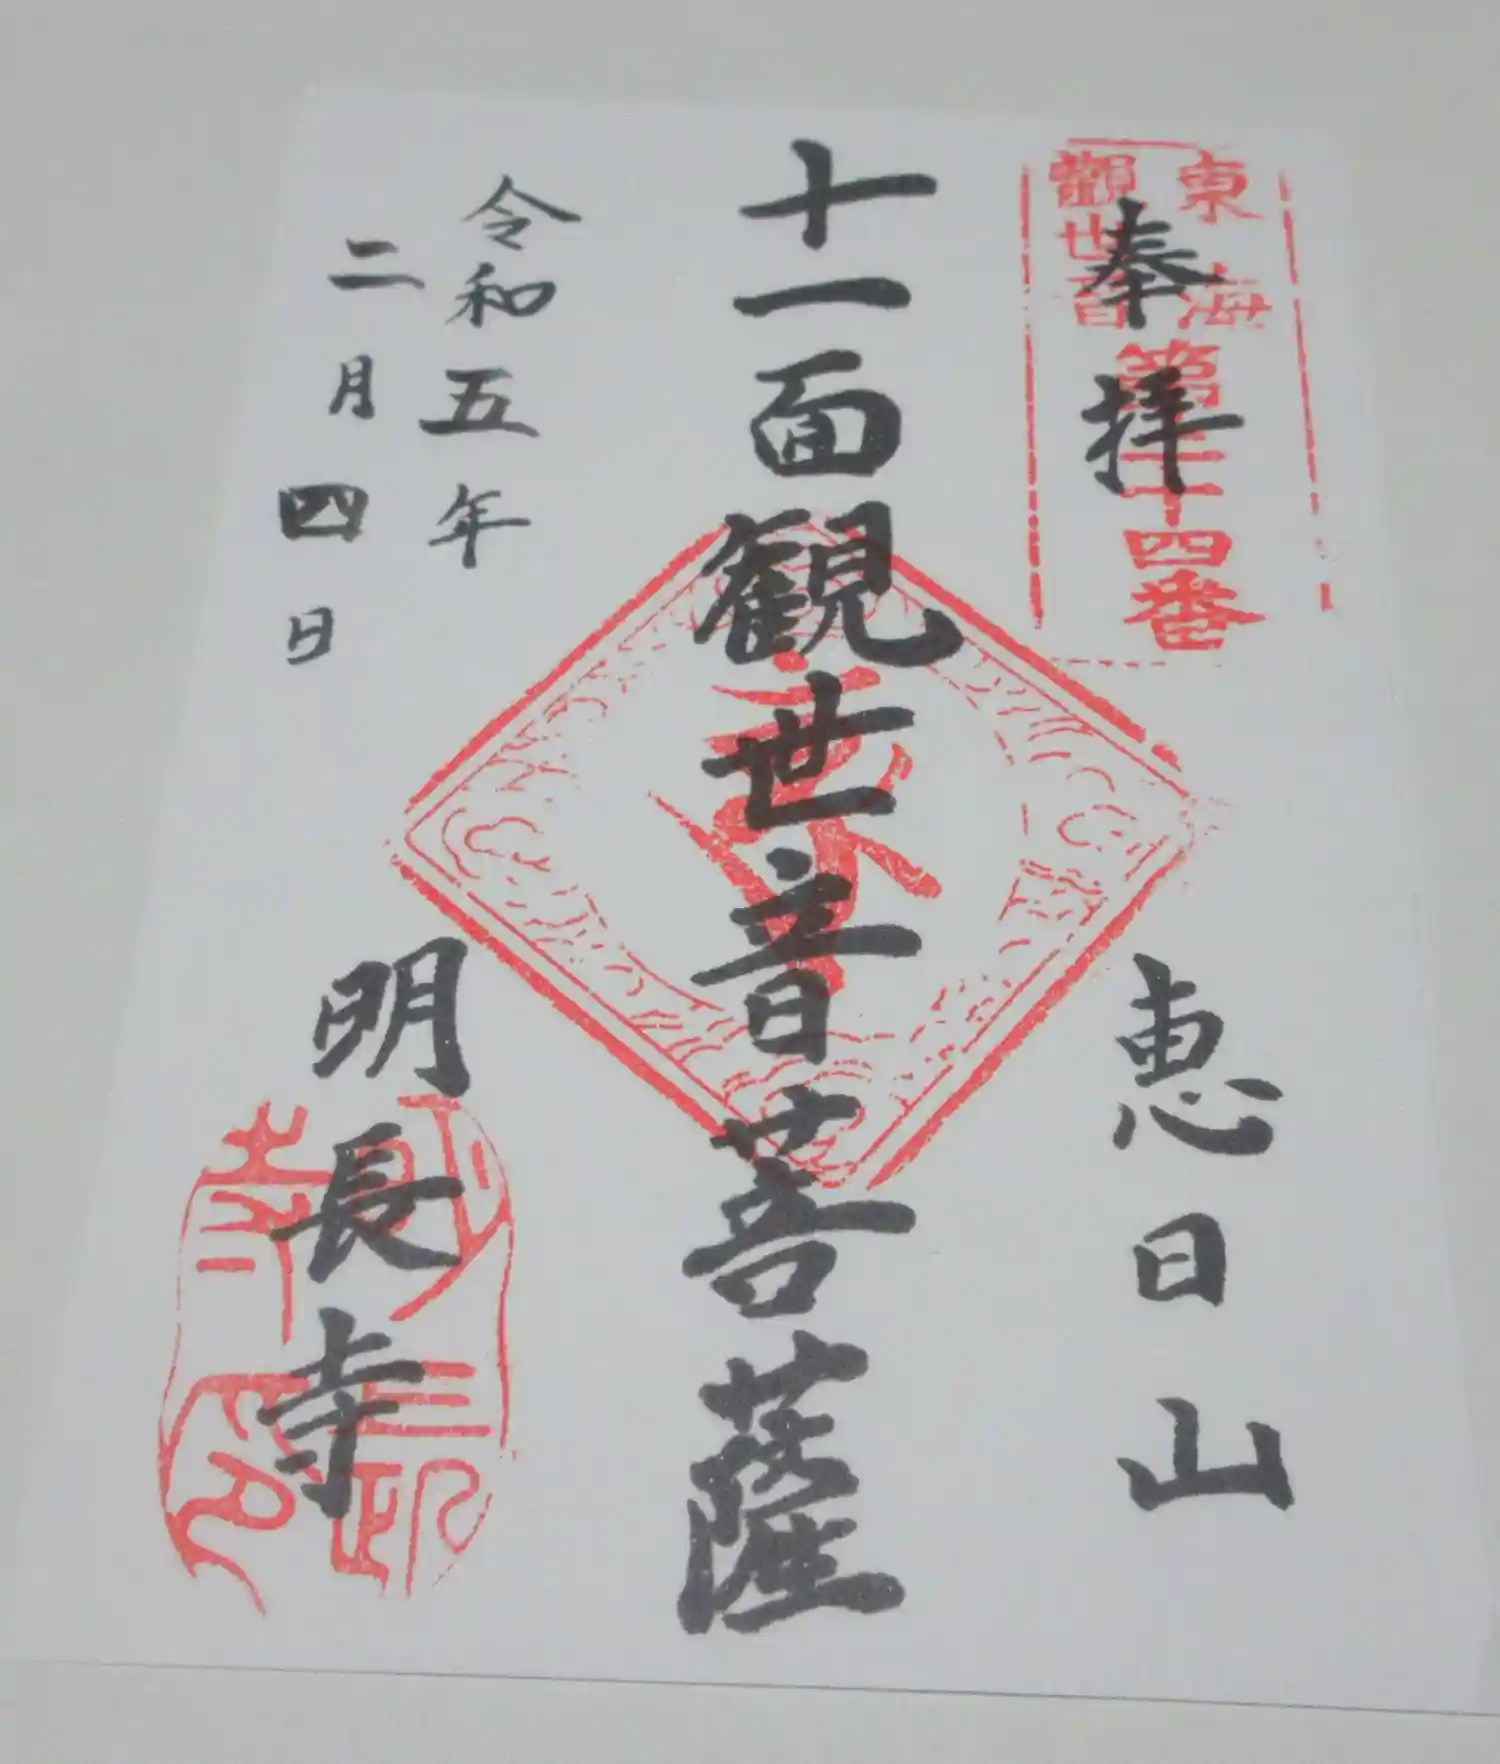 奉拝
東海
觀世音
第十四番
恵日山
十一面観世音菩薩
令和五年
二月四日
明長寺